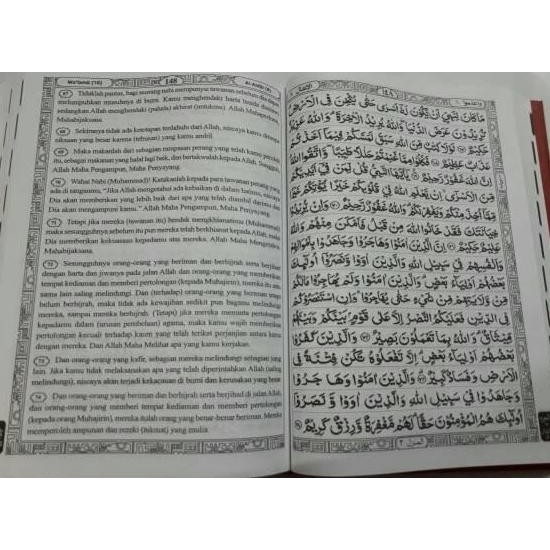 Wa'lamū (10)
148
Al-Anfāl (8)
67 Tidaklah pantas, bagi seorang nabi mempunyai tawanan sebelum dia dapat
melumpuhkan musuhnya di bumi. Kamu menghendaki harta benda duniawi
sedangkan Allah menghendaki (pahala) akhirat (untukmu). Allah Mahaperkasa,
Mahabijaksana.
68 Sekiranya tidak ada ketetapan terdahulu dari Allah, niscaya kamu ditimpa
siksaan yang besar karena (tebusan) yang kamu ambil.
69 Maka makanlah dari sebagian rampasan perang yang telah kamu peroleh
itu, sebagai makanan yang halal lagi baik, dan bertakwalah kepada Allah. Sungguh,
Allah Maha Pengampun, Maha Penyayang.
70 Wahai Nabi (Muhammad)! Katakanlah kepada para tawanan perang yang
ada di tanganmu, "Jika Allah mengetahui ada kebaikan di dalam hatimu, niscaya
Dia akan memberikan yang lebih baik dari apa yang telah diambil darimu dan
Dia akan mengampuni kamu." Allah Maha Pengampun, Maha Penyayang.
71 Tetapi jika mereka (tawanan itu) hendak mengkhianatimu (Muhammad)
maka sesungguhnya sebelum itu pun mereka telah berkhianat kepada Allah, maka
Dia memberikan kekuasaan kepadamu atas mereka. Allah Maha Mengetahui,
Mahabijaksana.
72 Sesungguhnya orang-orang yang beriman dan berhijrah serta berjihad
dengan harta dan jiwanya pada jalan Allah dan orang-orang yang memberikan
tempat kediaman dan memberi pertolongan (kepada Muhajirin), mereka itu satu
sama lain saling melindungi. Dan (terhadap) orang-orang yang beriman tetapi
belum berhijrah, maka tidak ada kewajiban sedikit pun bagimu melindungi
mereka, sampai mereka berhijrah. (Tetapi) jika mereka meminta pertolongan
kepadamu dalam (urusan pembelaan) agama, maka kamu wajib memberikan
pertolongan kecuali terhadap kaum yang telah terikat perjanjian antara kamu
dengan mereka. Dan Allah Maha Melihat apa yang kamu kerjakan.
73 Dan orang-orang yang kafir, sebagian mereka melindungi sebagian yang
lain. Jika kamu tidak melaksanakan apa yang telah diperintahkan Allah (saling
melindungi), niscaya akan terjadi kekacauan di bumi dan kerusakan yang besar.
74 Dan orang-orang yang beriman dan berhijrah serta berjihad di jalan Allah,
dan orang-orang yang memberi tempat kediaman dan memberi pertolongan
(kepada orang Muhajirin), mereka itulah orang yang benar-benar beriman. Mereka
memperoleh ampunan dan rezeki (nikmat) yang mulia.
الانفال ٨
١٤٨
واعلموا ١٠
مَاكَانَ لِنَبِيٍّ اَنْ يَّكُوْنَ لَهٗٓ اَسْرٰى حَتّٰى يُثْخِنَ فِى الْاَرْضِۗ
تُرِيْدُوْنَ عَرَضَ الدُّنْيَاۖ وَاللّٰهُ يُرِيْدُ الْاٰخِرَةَۗ وَاللّٰهُ عَزِيْزٌ
حَكِيْمٌ ٦٧ لَوْلَا كِتٰبٌ مِّنَ اللّٰهِ سَبَقَ لَمَسَّكُمْ فِيْمَآ اَخَذْتُمْ
عَذَابٌ عَظِيْمٌ ٦٨ فَكُلُوْا مِمَّا غَنِمْتُمْ حَلٰلًا طَيِّبًاۖ وَّاتَّقُوا اللّٰهَۗ
اِنَّ اللّٰهَ غَفُوْرٌ رَّحِيْمٌ ٦٩ يٰٓاَيُّهَا النَّبِيُّ قُلْ لِّمَنْ فِيْٓ اَيْدِيْكُمْ
مِّنَ الْاَسْرٰٓىۙ اِنْ يَّعْلَمِ اللّٰهُ فِيْ قُلُوْبِكُمْ خَيْرًا يُّؤْتِكُمْ خَيْرًا
مِّمَّآ اُخِذَ مِنْكُمْ وَيَغْفِرْ لَكُمْۗ وَاللّٰهُ غَفُوْرٌ رَّحِيْمٌ ٧٠ وَاِنْ يُّرِيْدُوْا
خِيَانَتَكَ فَقَدْ خَانُوا اللّٰهَ مِنْ قَبْلُ فَاَمْكَنَ مِنْهُمْۗ وَاللّٰهُ
عَلِيْمٌ حَكِيْمٌ ٧١ اِنَّ الَّذِيْنَ اٰمَنُوْا وَهَاجَرُوْا وَجَاهَدُوْا بِاَمْوَالِهِمْ
وَاَنْفُسِهِمْ فِيْ سَبِيْلِ اللّٰهِ وَالَّذِيْنَ اٰوَوْا وَّنَصَرُوْٓا اُولٰۤىِٕكَ
بَعْضُهُمْ اَوْلِيَاۤءُ بَعْضٍۗ وَالَّذِيْنَ اٰمَنُوْا وَلَمْ يُهَاجِرُوْا مَا لَكُمْ
مِّنْ وَّلَايَتِهِمْ مِّنْ شَيْءٍ حَتّٰى يُهَاجِرُوْاۚ وَاِنِ اسْتَنْصَرُوْكُمْ
فِى الدِّيْنِ فَعَلَيْكُمُ النَّصْرُ اِلَّا عَلٰى قَوْمٍۢ بَيْنَكُمْ وَبَيْنَهُمْ
مِّيْثَاقٌۗ وَاللّٰهُ بِمَا تَعْمَلُوْنَ بَصِيْرٌ ٧٢ وَالَّذِيْنَ كَفَرُوْا
بَعْضُهُمْ اَوْلِيَاۤءُ بَعْضٍۗ اِلَّا تَفْعَلُوْهُ تَكُنْ فِتْنَةٌ فِى
الْاَرْضِ وَفَسَادٌ كَبِيْرٌ ٧٣ وَالَّذِيْنَ اٰمَنُوْا وَهَاجَرُوْا
وَجَاهَدُوْا فِيْ سَبِيْلِ اللّٰهِ وَالَّذِيْنَ اٰوَوْا وَّنَصَرُوْٓا
اُولٰۤىِٕكَ هُمُ الْمُؤْمِنُوْنَ حَقًّاۗ لَهُمْ مَّغْفِرَةٌ وَّرِزْقٌ كَرِيْمٌ ٧٤